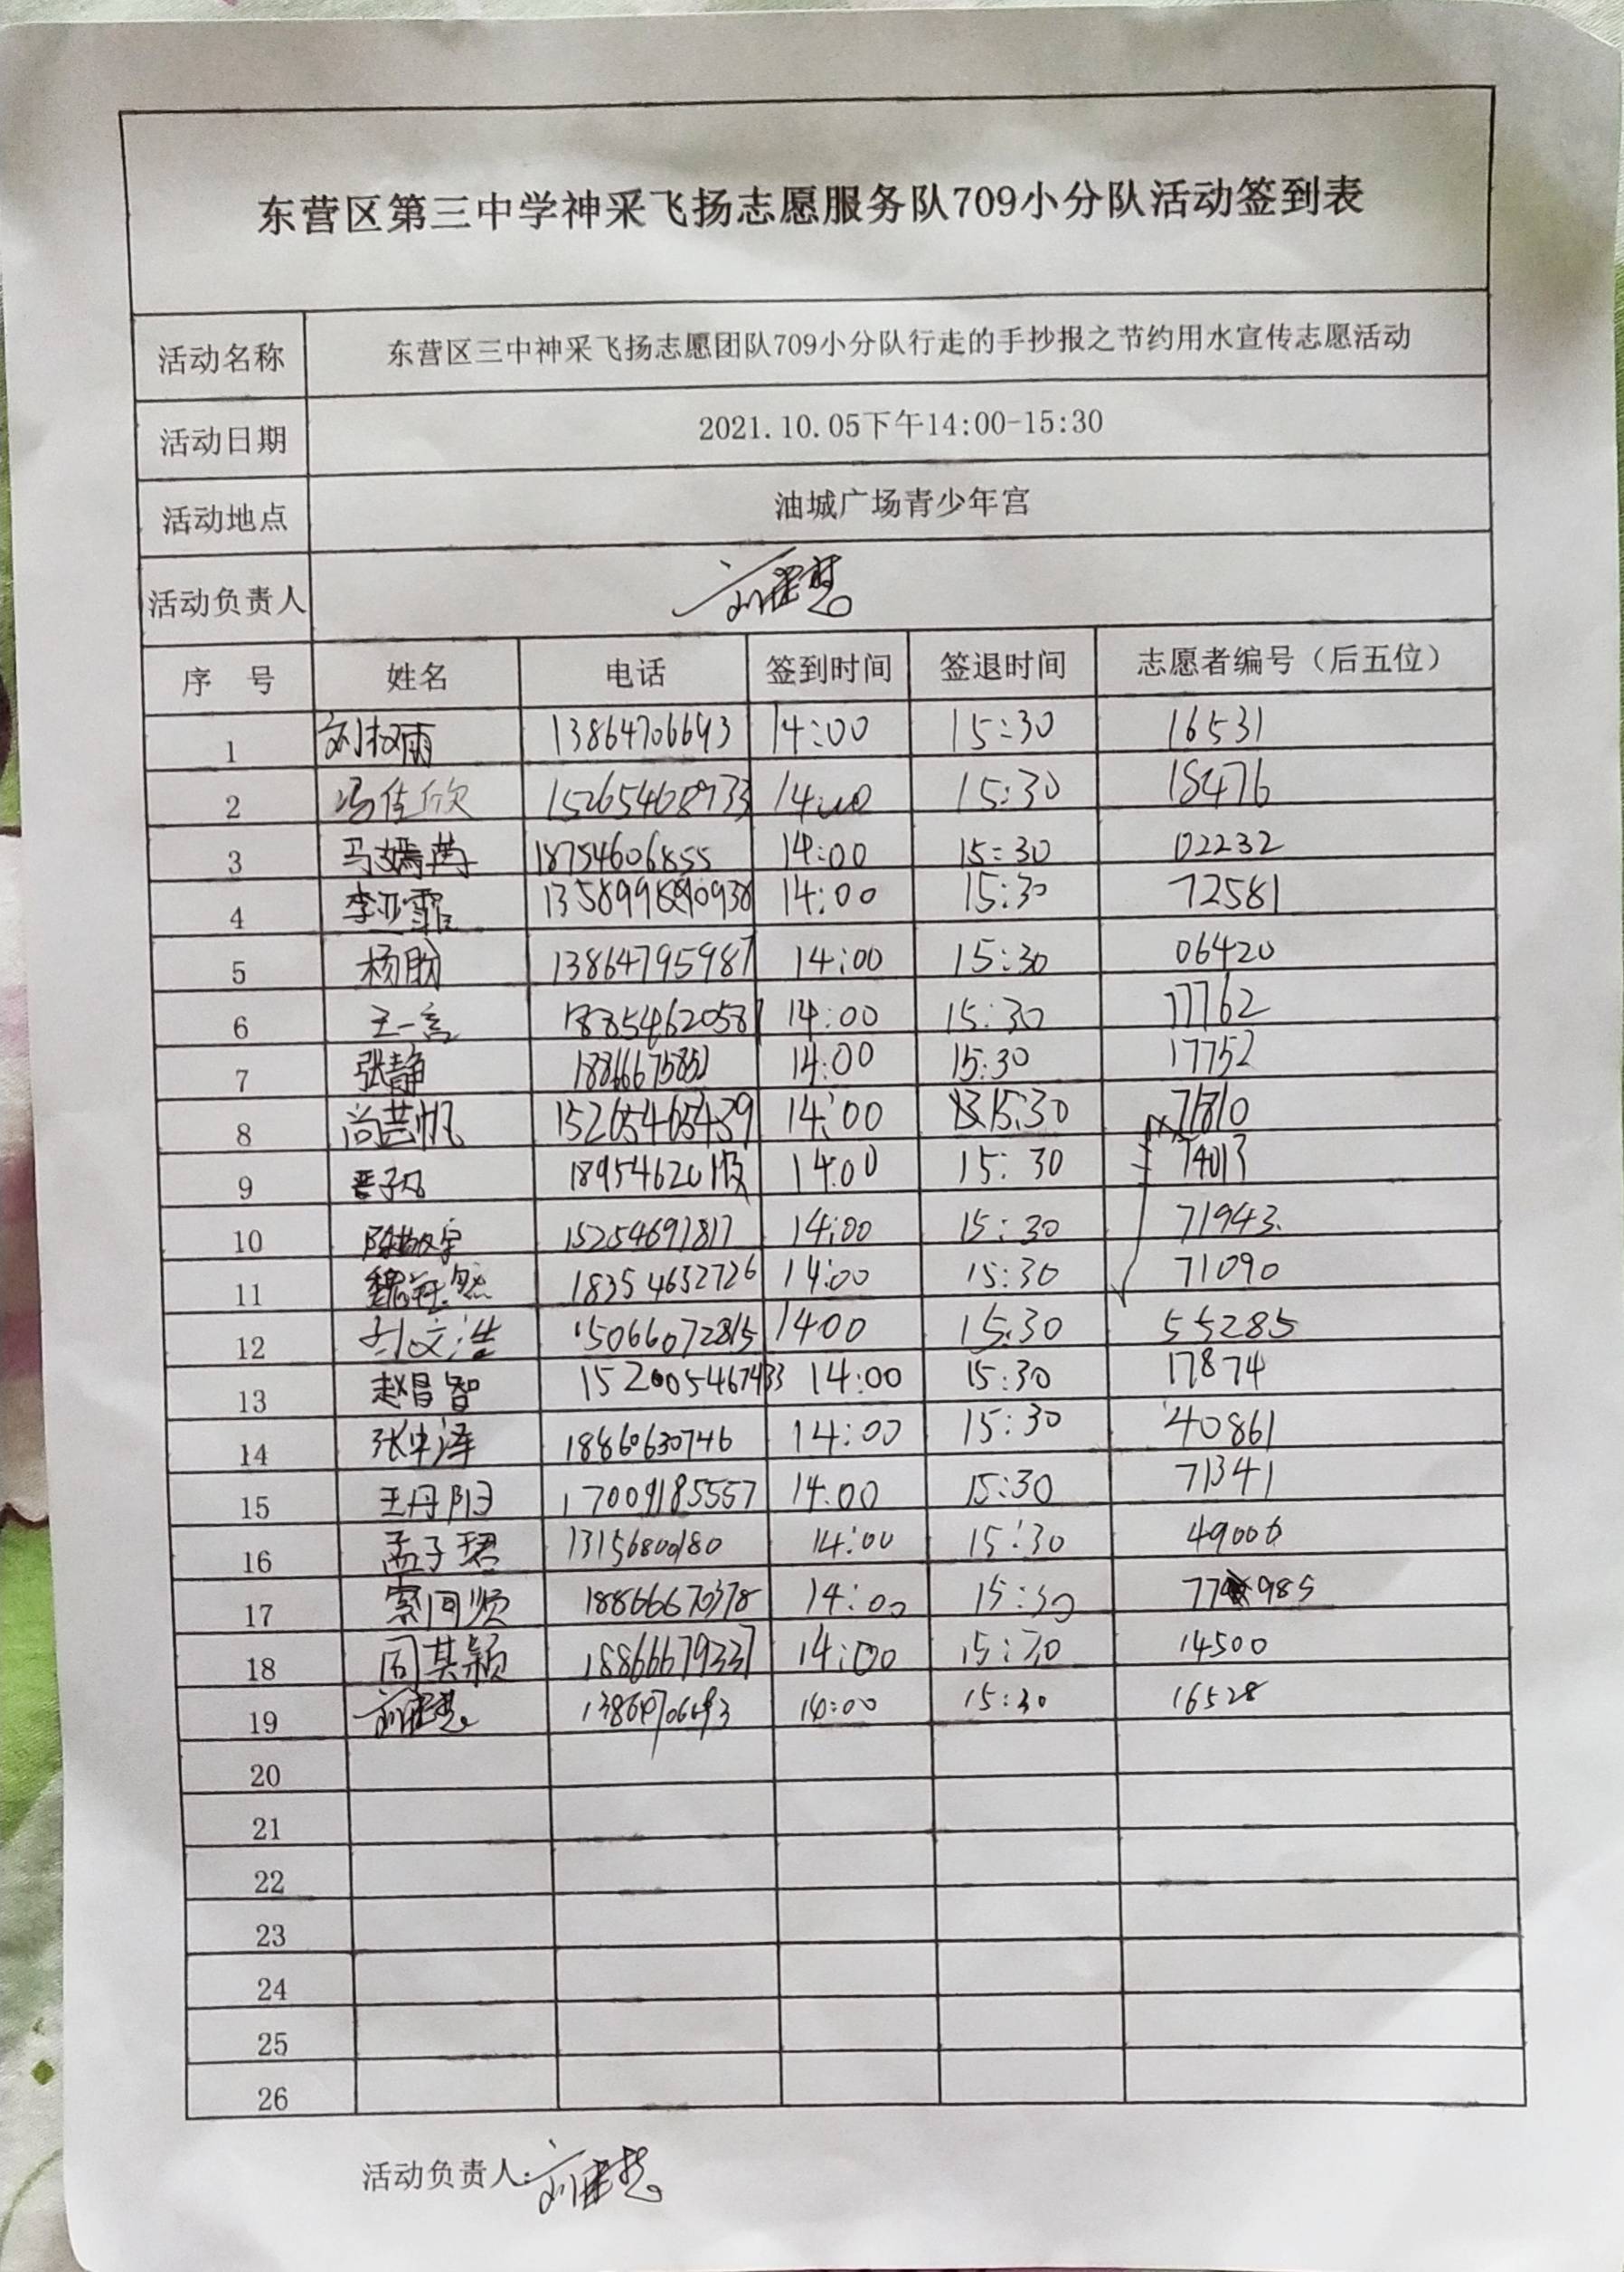 东营区第三中学神采飞扬志愿服务队709小分队活动签到表
活动名称 东营区三中神采飞扬志愿团队709小分队行走的手抄报之节约用水宣传志愿活动
活动日期 2021.10.05下午14:00-15:30
活动地点 油城广场青少年宫
活动负责人
序 号 姓名 电话 签到时间 签退时间 志愿者编号（后五位）
1 13864706693 14:00 15:30 16531
2 冯佳欣 15:30 18476
3 18754606855 14:00 15:30 02232
4 李亚霏 14:00 15:30 72581
5 13864795987 14:00 15:30 06420
6 王一言 14:00 15:30 17762
7 张静 14:00 15:30 17752
8 尚芸帆 14:00 15:30 71810
9 14:00 15:30 74013
10 15254691817 14:00 15:30 71943.
11 18354652726 14:00 15:30 71090
12 刘文浩 1400 15:30 55285
13 赵昌智 14:00 15:30 17874
14 18860630746 14:00 15:30 40861
15 王丹阳 17009185557 14:00 15:30 71341
16 孟子珺 14:00 15:30 49006
17 18866670378 14:00 15:30 77 985
18 周其颖 18866679337 14:00 15:30 14500
19 14:00 15:30 16528
20
21
22
23
24
25
26
活动负责人: